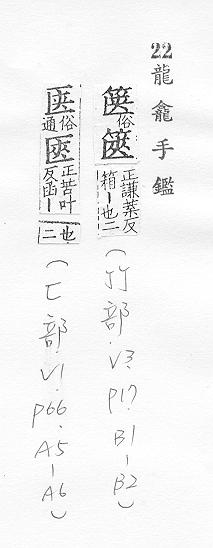 22龍龕手鑑
篋俗篋正謙葉反箱ー也二(竹部.V3.P17.B1-B2)
匧俗通匧正苦叶反函ー也二(匚部.V1.P66.A5-A6)